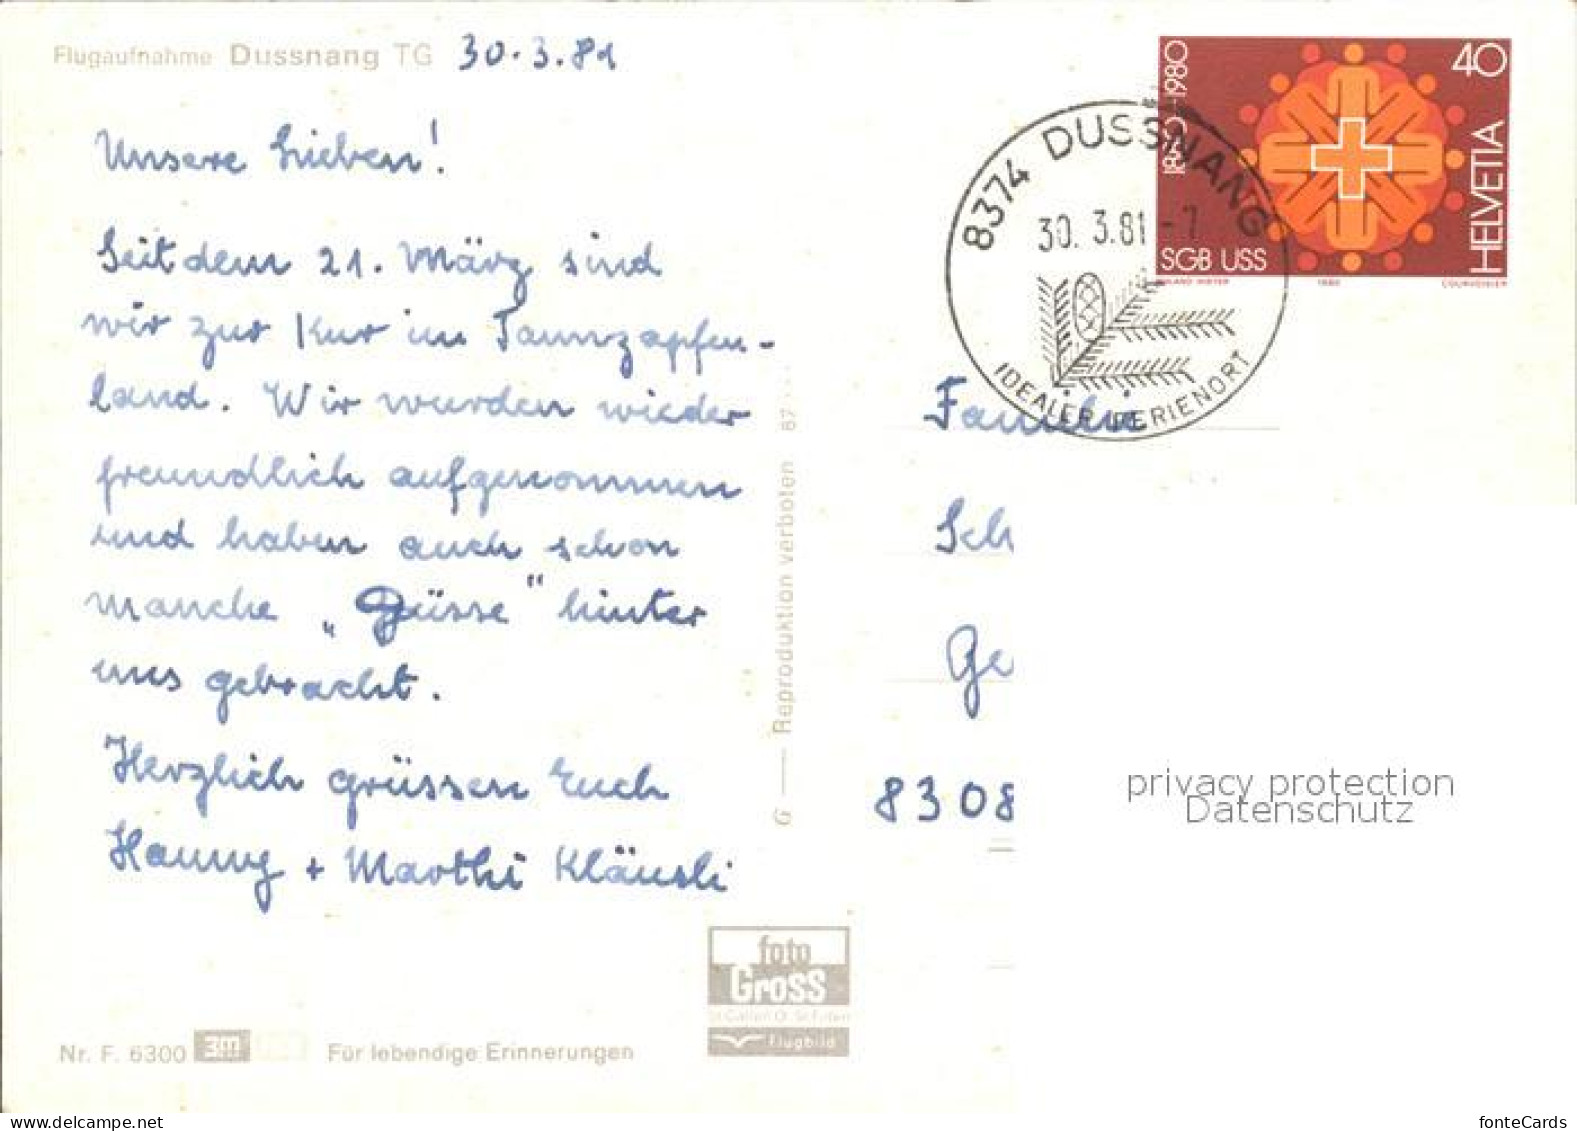 Flugaufnahme Dussnang TG 30.3.81
Unsere Lieben!
Seit dem 21. März sind
wir zur Kur im Tannzapfen-
land. Wir wurden wieder
freundlich aufgenommen
und haben auch schon
manche „Güsse" hinter
uns gebracht.
Herzlich grüssen Euch
Hanny + Marthi Kläusli
Nr. F. 6300 3m
Für lebendige Erinnerungen
G — Reproduktion verboten 67
foto
Gross
St. Gallen
Flugbild
8374 DUSSNANG
30. 3.81 - 7
IDEALER FERIENORT
1880-1980
40
HELVETIA
SGB USS
1980
COURVOISIER
Familie
Sch
Ge
8308
privacy protection
Datenschutz
fonteCards